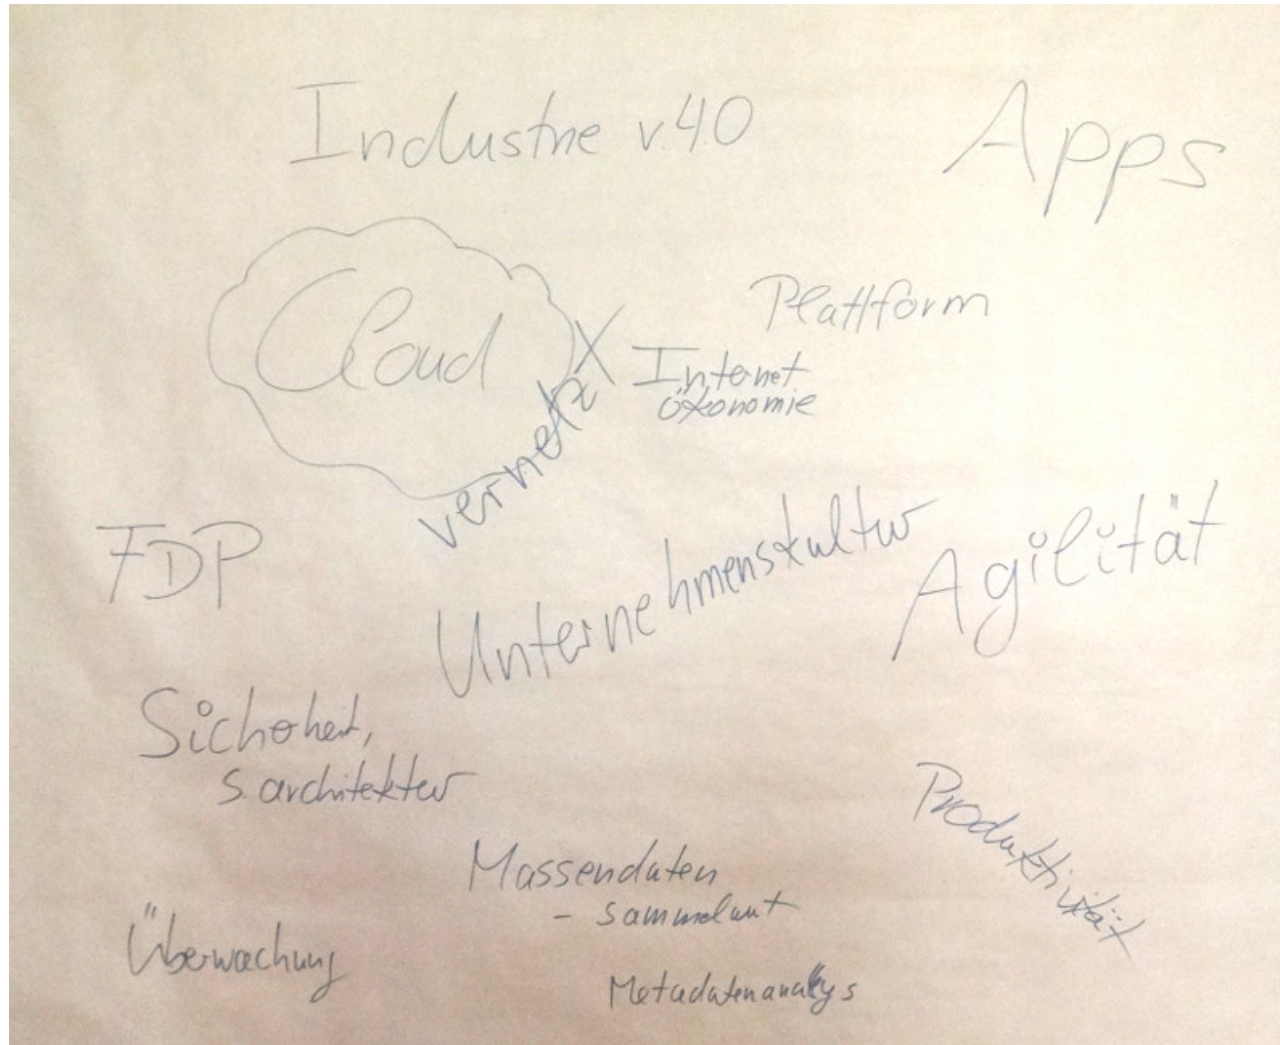 Industrie v.4.0
Apps
Cloud
Plattform
vernetzX
Internet
ökonomie
FDP
Unternehmenskultur
Agilität
Sicherheit,
S.architektur
Produktivität
Massendaten
- sammelwut
Überwachung
Metadatenanalys